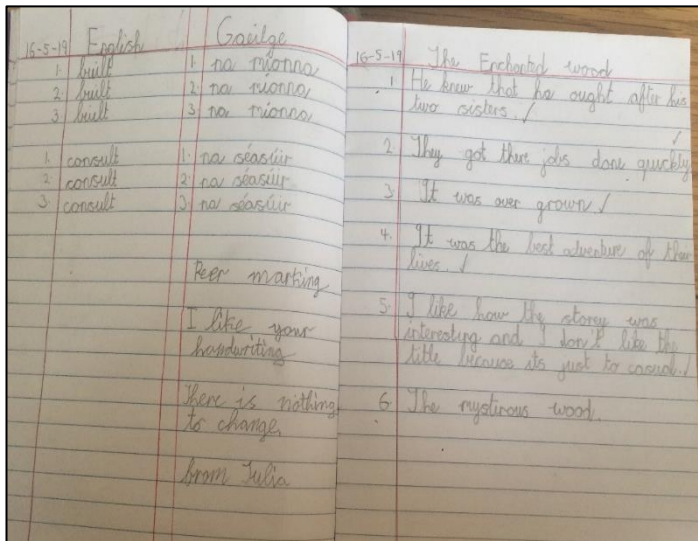 16-5-19 English Gaeilge
1. built 1. na míonna
2. built 2. na míonna
3. built 3. na míonna
1. consult 1. na séasúir
2. consult 2. na séasúir
3. consult 3. na séasúir
Peer marking
I like your
handwriting
There is nothing
to change
from Julia
16-5-19 The Enchanted wood
1. He knew that he ought after his
two sisters.
2. They got there jobs done quickly
3. It was over grown
4. It was the best adventure of their
lives.
5. I like how the storey was
interesting and I don't like the
title because its just to casual.
6. The mystirous wood.